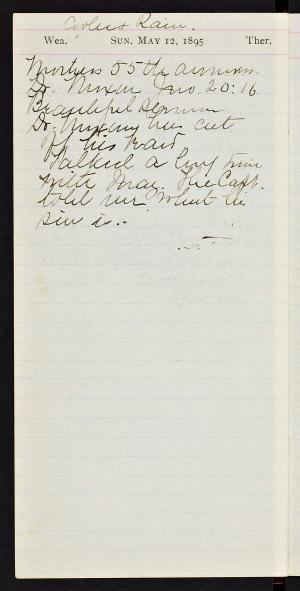 Cooler & Rain.
Wea. SUN. MAY 12, 1895 Ther.
Mothers 55th annivers.
Dr. Nixon Jno. 20:16
Beautiful Sermon.
Dr. has cut
off his beard
Talked a long time
with May. The Capt.
told me what the
sin is.